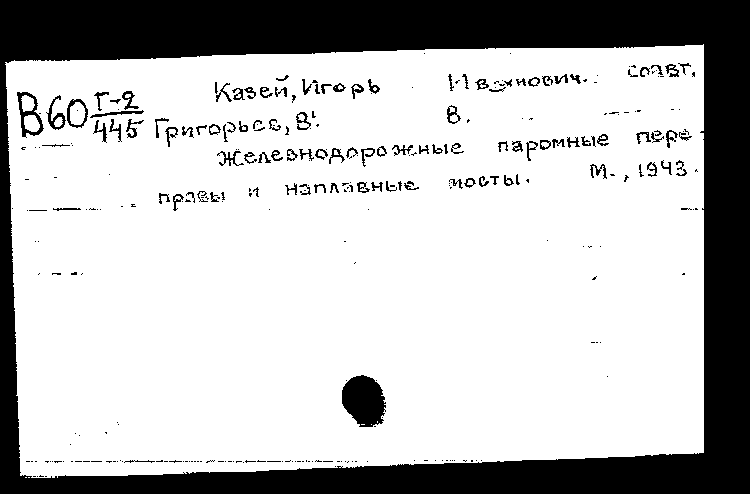 В60 Г-2/445
Казей, Игорь Иванович. соавт.
Григорьев, В. В.
Железнодорожные паромные пере-
правы и наплавные мосты. М., 1943.